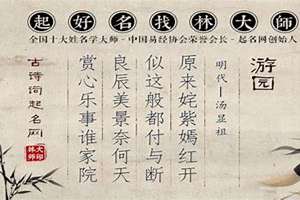 起好名找林大師
全国十大姓名学大师 - 中国易经协会荣誉会长 - 起名网创始人
游园
明代—汤显祖
原来姹紫嫣红开
似这般都付与断
良辰美景奈何天
赏心乐事谁家院
古诗词起名网
林大师印